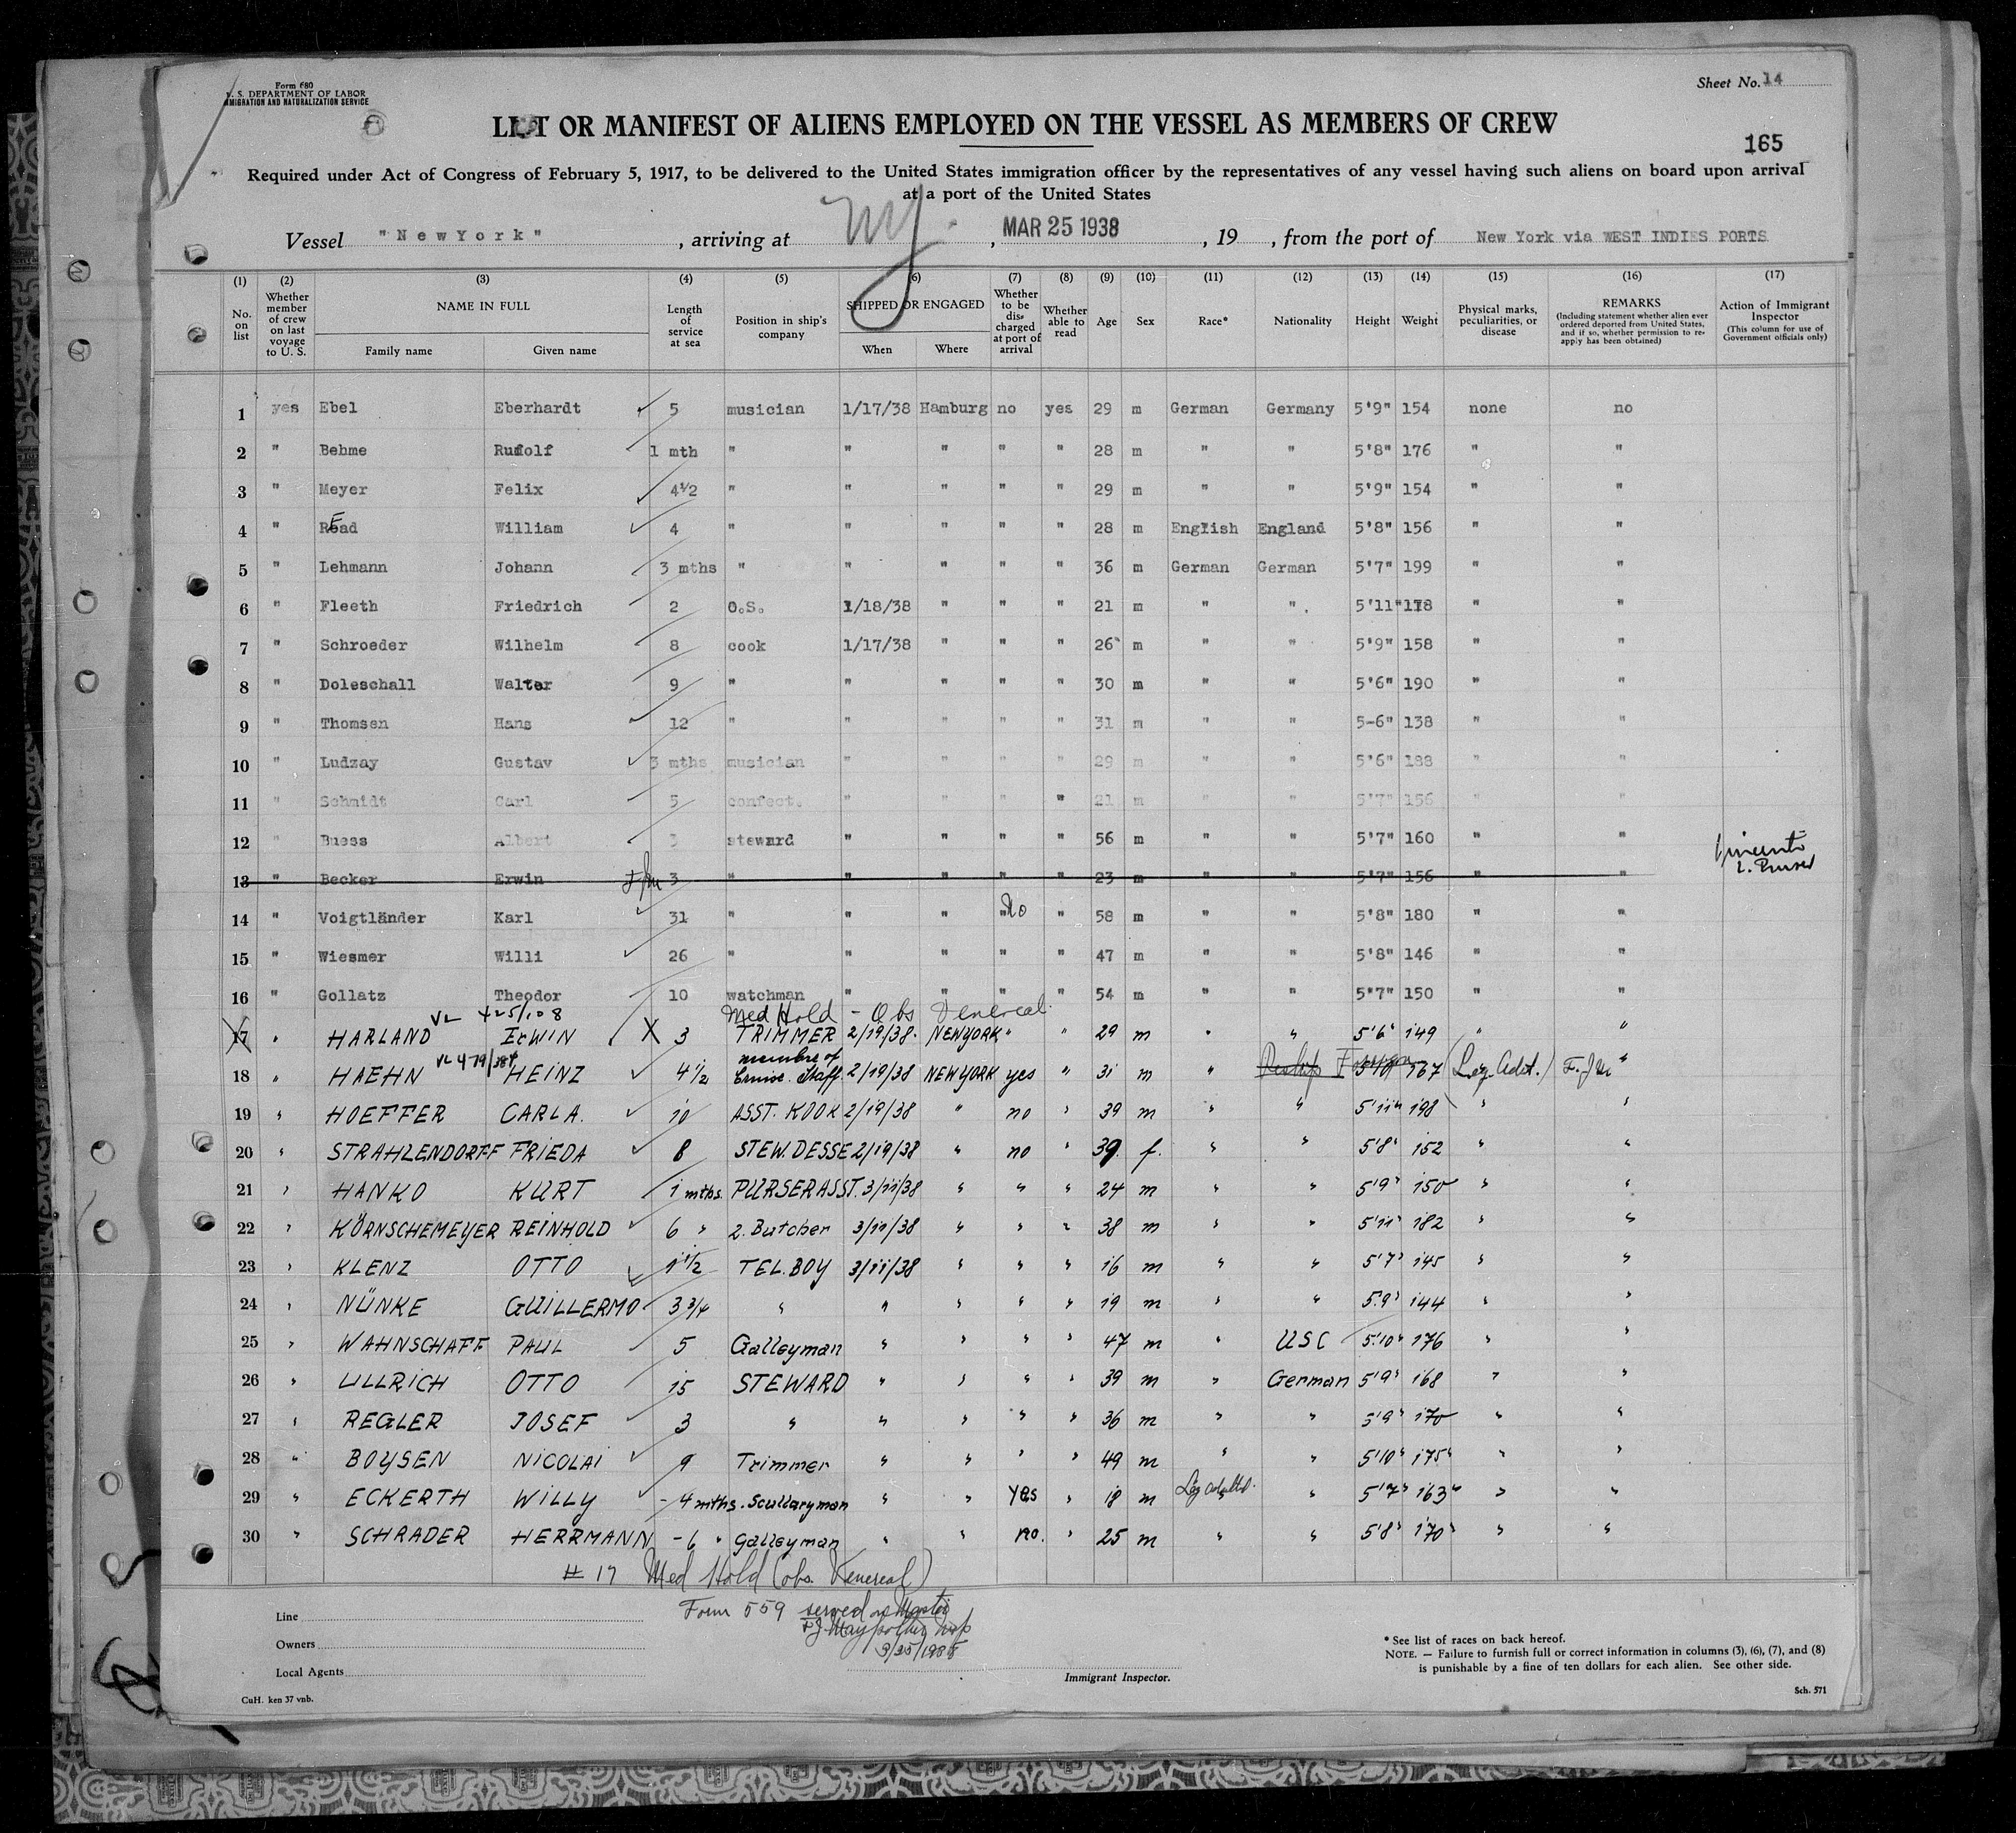 Form 680
U. S. DEPARTMENT OF LABOR
IMMIGRATION AND NATURALIZATION SERVICE
Sheet No. 14
LIST OR MANIFEST OF ALIENS EMPLOYED ON THE VESSEL AS MEMBERS OF CREW
165
Required under Act of Congress of February 5, 1917, to be delivered to the United States immigration officer by the representatives of any vessel having such aliens on board upon arrival
at a port of the United States
Vessel "NewYork", arriving at NY, MAR 25 1938, 19 , from the port of New York via WEST INDIES PORTS
(1) (2) (3) (4) (5) (6) (7) (8) (9) (10) (11) (12) (13) (14) (15) (16) (17)
No. on list
Whether member of crew on last voyage to U. S.
NAME IN FULL
Family name Given name
Length of service at sea
Position in ship's company
SHIPPED OR ENGAGED
When Where
Whether to be discharged at port of arrival
Whether able to read
Age
Sex
Race*
Nationality
Height
Weight
Physical marks, peculiarities, or disease
REMARKS
(Including statement whether alien ever ordered deported from United States, and if so, whether permission to re-apply has been obtained)
Action of Immigrant Inspector
(This column for use of Government officials only)
1 yes Ebel Eberhardt ✓ 5 musician 1/17/38 Hamburg no yes 29 m German Germany 5'9" 154 none no
2 " Behme Rudolf ✓ 1 mth " " " " " 28 m " " 5'8" 176 " "
3 " Meyer Felix ✓ 4½ " " " " " 29 m " " 5'9" 154 " "
4 " Read William ✓ 4 " " " " " 28 m English England 5'8" 156 " "
5 " Lehmann Johann ✓ 3 mths " " " " " 36 m German German 5'7" 199 " "
6 " Fleeth Friedrich ✓ 2 O.S. 1/18/38 " " " 21 m " " 5'11" 178 " "
7 " Schroeder Wilhelm ✓ 8 cook 1/17/38 " " " 26 m " " 5'9" 158 " "
8 " Doleschall Walter ✓ 9 " " " " " 30 m " " 5'6" 190 " "
9 " Thomsen Hans ✓ 12 " " " " " 31 m " " 5-6" 138 " "
10 " Ludzay Gustav ✓ 3 mths musician " " " " 29 m " " 5'6" 188 " "
11 " Schmidt Carl ✓ 5 confect. " " " " 21 m " " 5'7" 156 " "
12 " Buess Albert ✓ 3 steward " " " " 56 m " " 5'7" 160 " "
13 " Becker Erwin 3 " " " " " 23 m " " 5'7" 156 " "
14 " Voigtländer Karl ✓ 31 " " " " No " 58 m " " 5'8" 180 " "
15 " Wiesmer Willi ✓ 26 " " " " " 47 m " " 5'8" 146 " "
16 " Gollatz Theodor 10 watchman " " " " 54 m " " 5"7" 150 " "
VL 425/108 Med Hold - Obs Venereal
17 " HARLAND ERWIN X 3 TRIMMER 2/19/38. NEWYORK " " 29 m " " 5'6" 149 " "
18 " HAEHN HEINZ ✓ 4½ membre of Cruise. Staff. 2/19/38 NEWYORK yes " 31 m " 167 "
19 " HOEFFER CARLA. ✓ 10 ASST. KOOK 2/19/38 " no " 39 m " " 5'11" 198 " "
20 " STRAHLENDORFF FRIEDA ✓ 8 STEW. DESSE 2/19/38 " no " 39 f. " " 5'8" 152 " "
21 " HANKO KURT 1 mths. PURSERASST. 3/11/38 " " " 24 m " " 5'9" 150 " "
22 " KÖRNSCHEMEYER REINHOLD ✓ 6 " 2. Butcher 3/11/38 " " " 38 m " " 5'11" 182 " "
23 " KLENZ OTTO ✓ 1½ TEL. BOY 3/11/38 " " " 16 m " " 5'7" 145 " "
24 " NÜNKE GUILLERMO ✓ 3¾ " " " " " 19 m " " 5.9" 144 " "
25 " WAHNSCHAFF PAUL ✓ 5 Galleyman " " " " 47 m " USC 5.10" 176 " "
26 " ULLRICH OTTO 15 STEWARD " " " " 39 m " German 5'9" 168 " "
27 " REGLER JOSEF ✓ 3 " " " " " 36 m " " 5'9" 170 " "
28 " BOYSEN NICOLAI ✓ 9 Trimmer " " " " 49 m " " 5'10" 175 " "
29 " ECKERTH WILLY ✓ - 4 mths. Scullaryman " " yes " 18 m " " 5'7" 163 " "
30 " SCHRADER HERRMANN - 6 " galleyman " " no. " 25 m " " 5'8" 170 " "
# 17 Med Hold (obs. Venereal)
Form 559 served on Master
3/25/1938
Line
Owners
Local Agents
Immigrant Inspector.
* See list of races on back hereof.
NOTE. — Failure to furnish full or correct information in columns (3), (6), (7), and (8)
is punishable by a fine of ten dollars for each alien. See other side.
CuH. ken 37 vnb.
Sch. 571